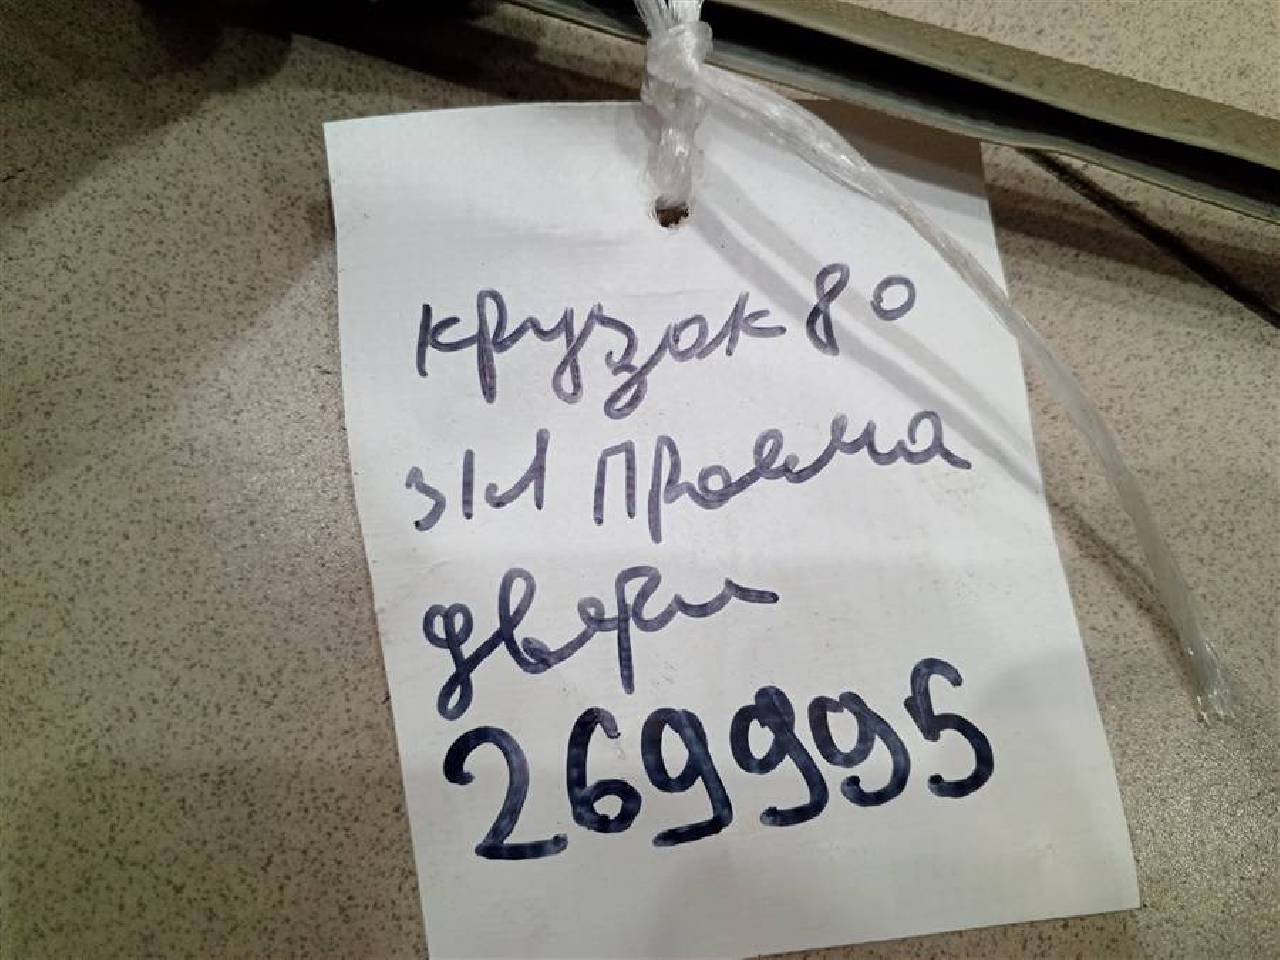 крузак 80
з/л Проема
двери
269995